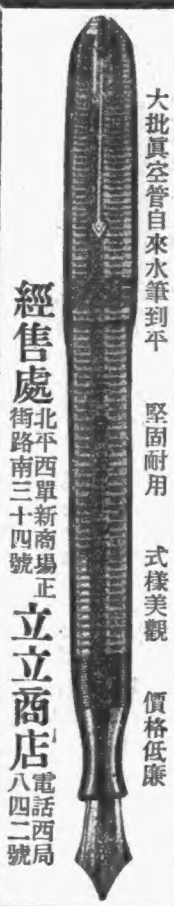 大批眞空管自來水筆到平　堅固耐用　式樣美觀　價格低廉
經售處
北平西單新商場正
街路南三十四號
立立商店
電話西局
八四二號